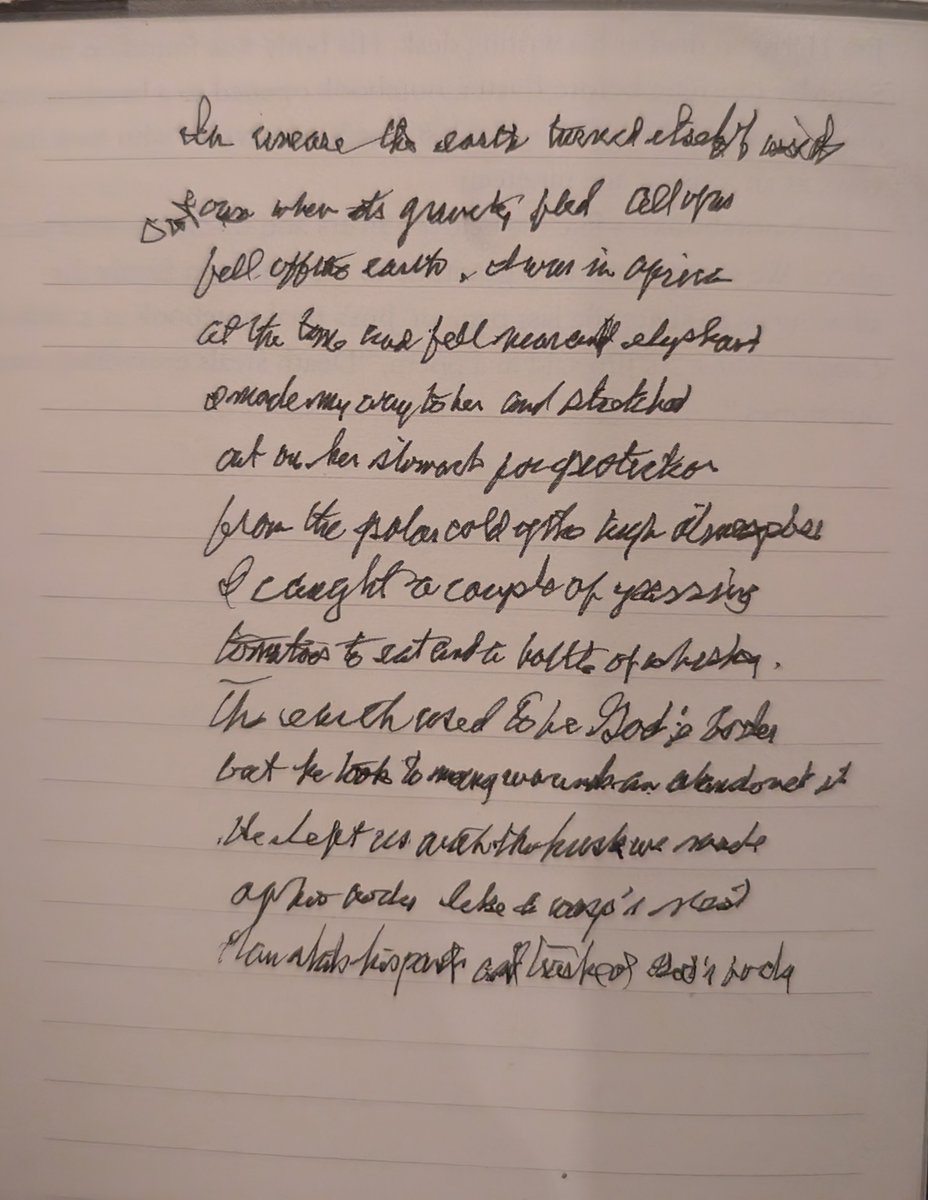 the earth turned itself inside
out when its gravity fled all of us
fell off the earth. I was in africa
at the time and fell near an elephant
I made my way to her and stretched
out on her stomach for protection
from the polar cold of the high atmosphere
I caught a couple of passing
tomatoes to eat and a bottle of whiskey.
The earth used to be God's body
but he took to many wounds an abandoned it
He left us with the husk we made
of his body like a wasp's nest
Man God's body